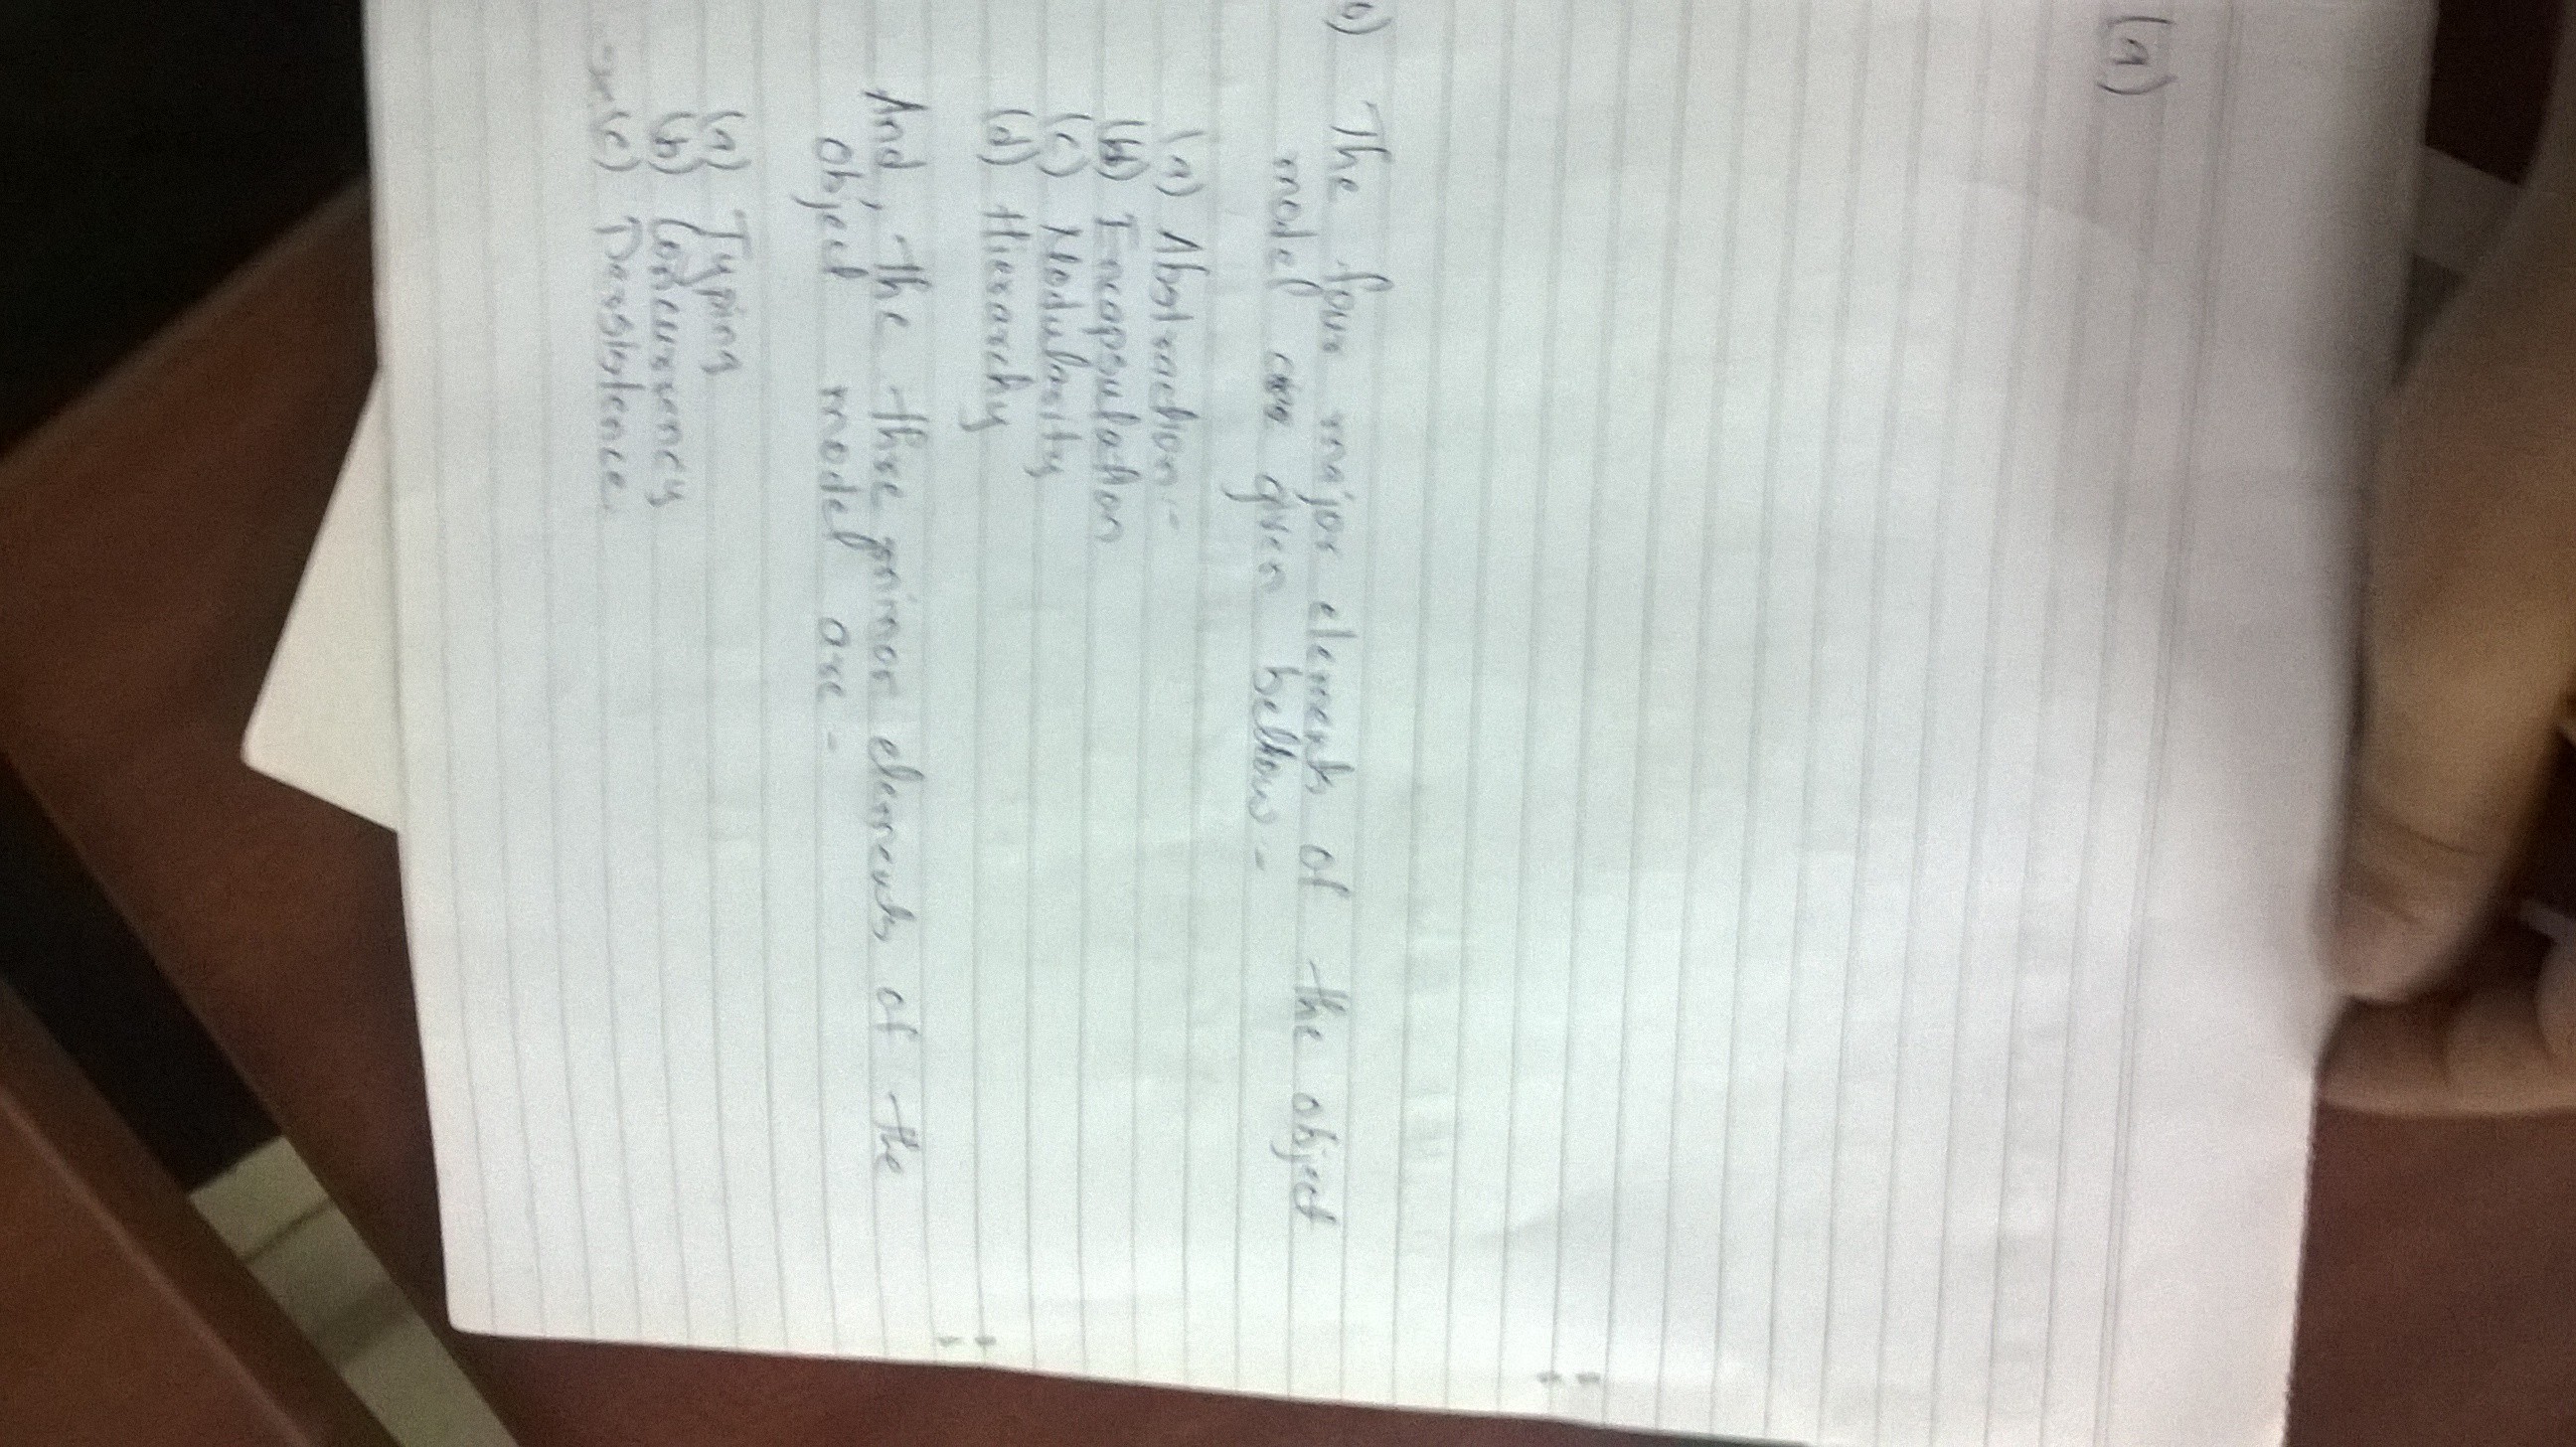 (a)
b) The four major elements of the object
model are given bellow -
(a) Abstraction :-
(b) Encapsulation
(c) Modularity
(d) Hierarchy
And, the thre minor elements of the
object model are -
(a) Typing
(b) Concurrency
(c) Persistence.